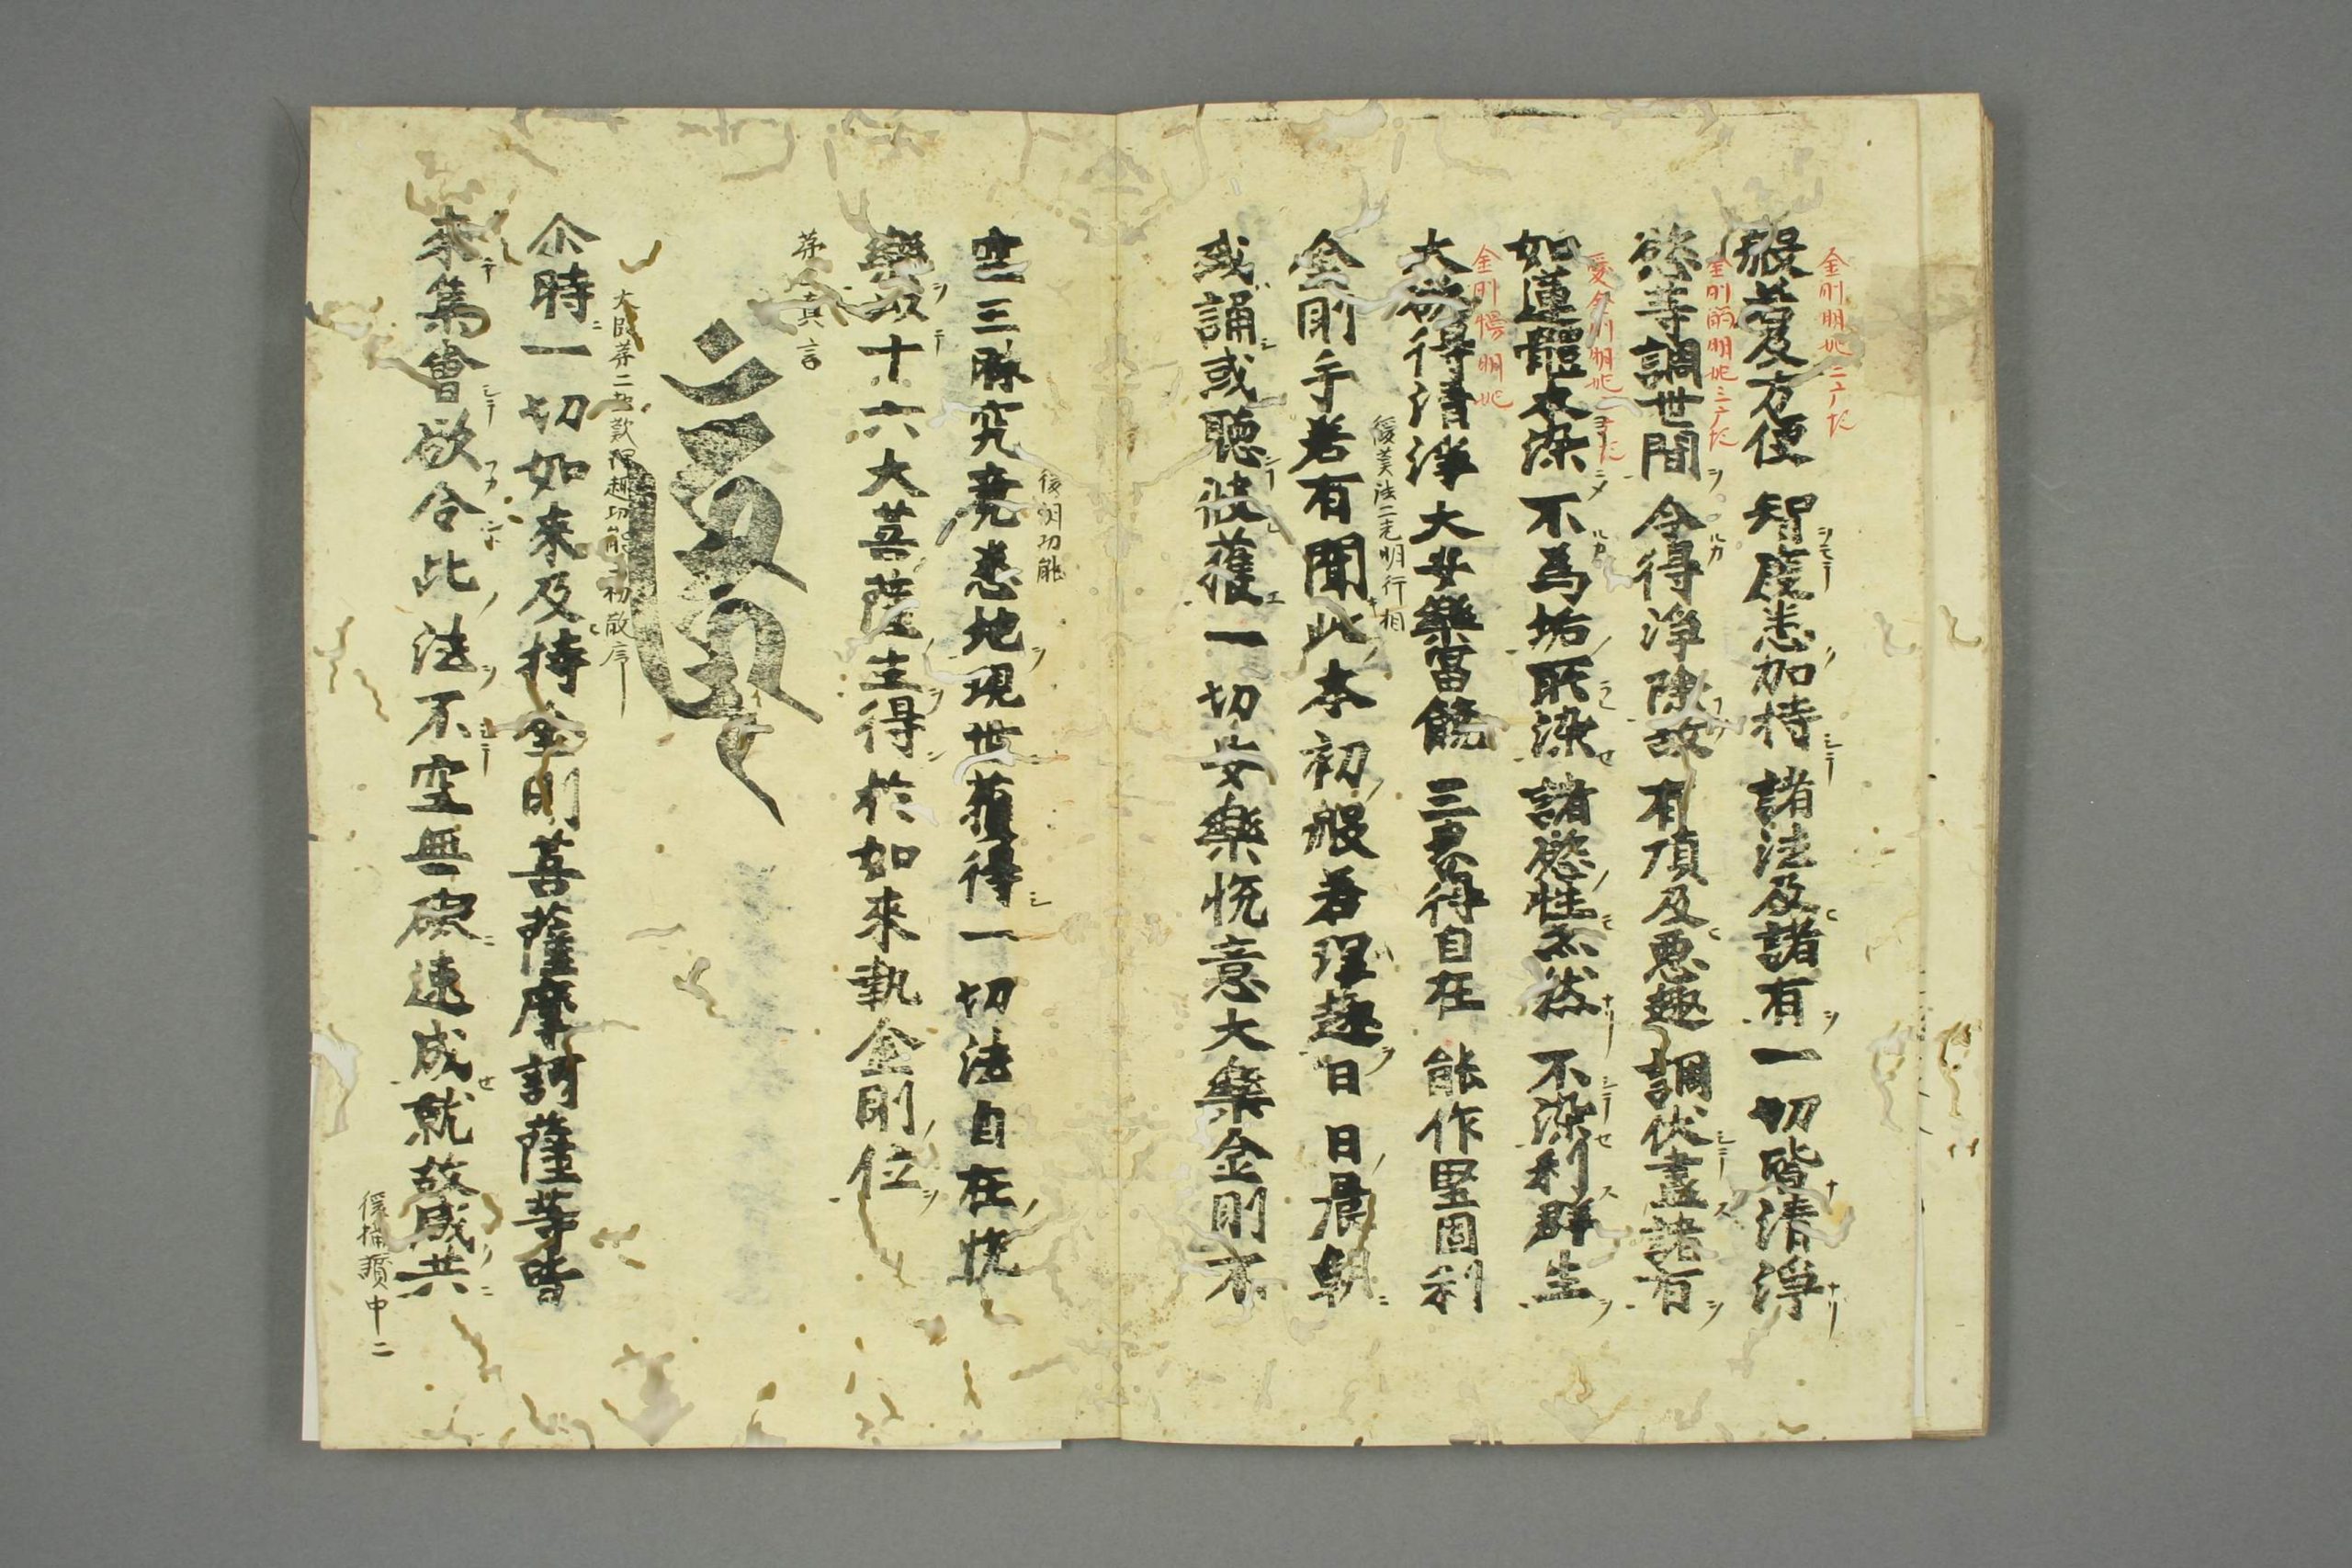 金剛明妃
般若及方便 智度悉加持 諸法及諸有 一切皆清淨
金剛 明妃
慾等調世間 令得淨除故 有頂及悪趣 調伏盡諸有
明妃
如蓮體本染 不為垢所染 諸慾性亦然 不染利群生
金剛 明妃
大慾得清淨 大安樂富饒 三界得自在 能作堅固利
後 法 明行相
金剛手若有聞此本初般若理趣日日晨朝
或誦或聴彼獲一切安樂悦意大樂金剛不
後明功能
空三昧究竟悉地現世獲得一切法自在悦
樂以十六大菩薩生得於如來執金剛位
真言
尒時一切如来及持金剛菩薩摩訶薩等皆
来集會欲令此法不空無礙速成就故咸共
後 讃中二